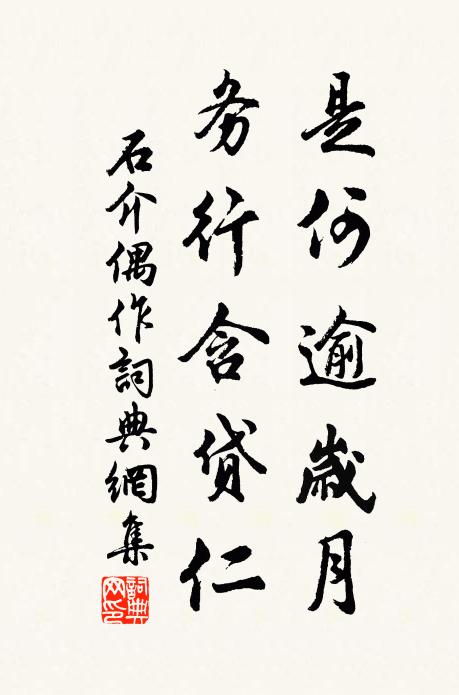 是何逾歲月
务行含贷仁
石介偶作詞典網集
詞典
网印